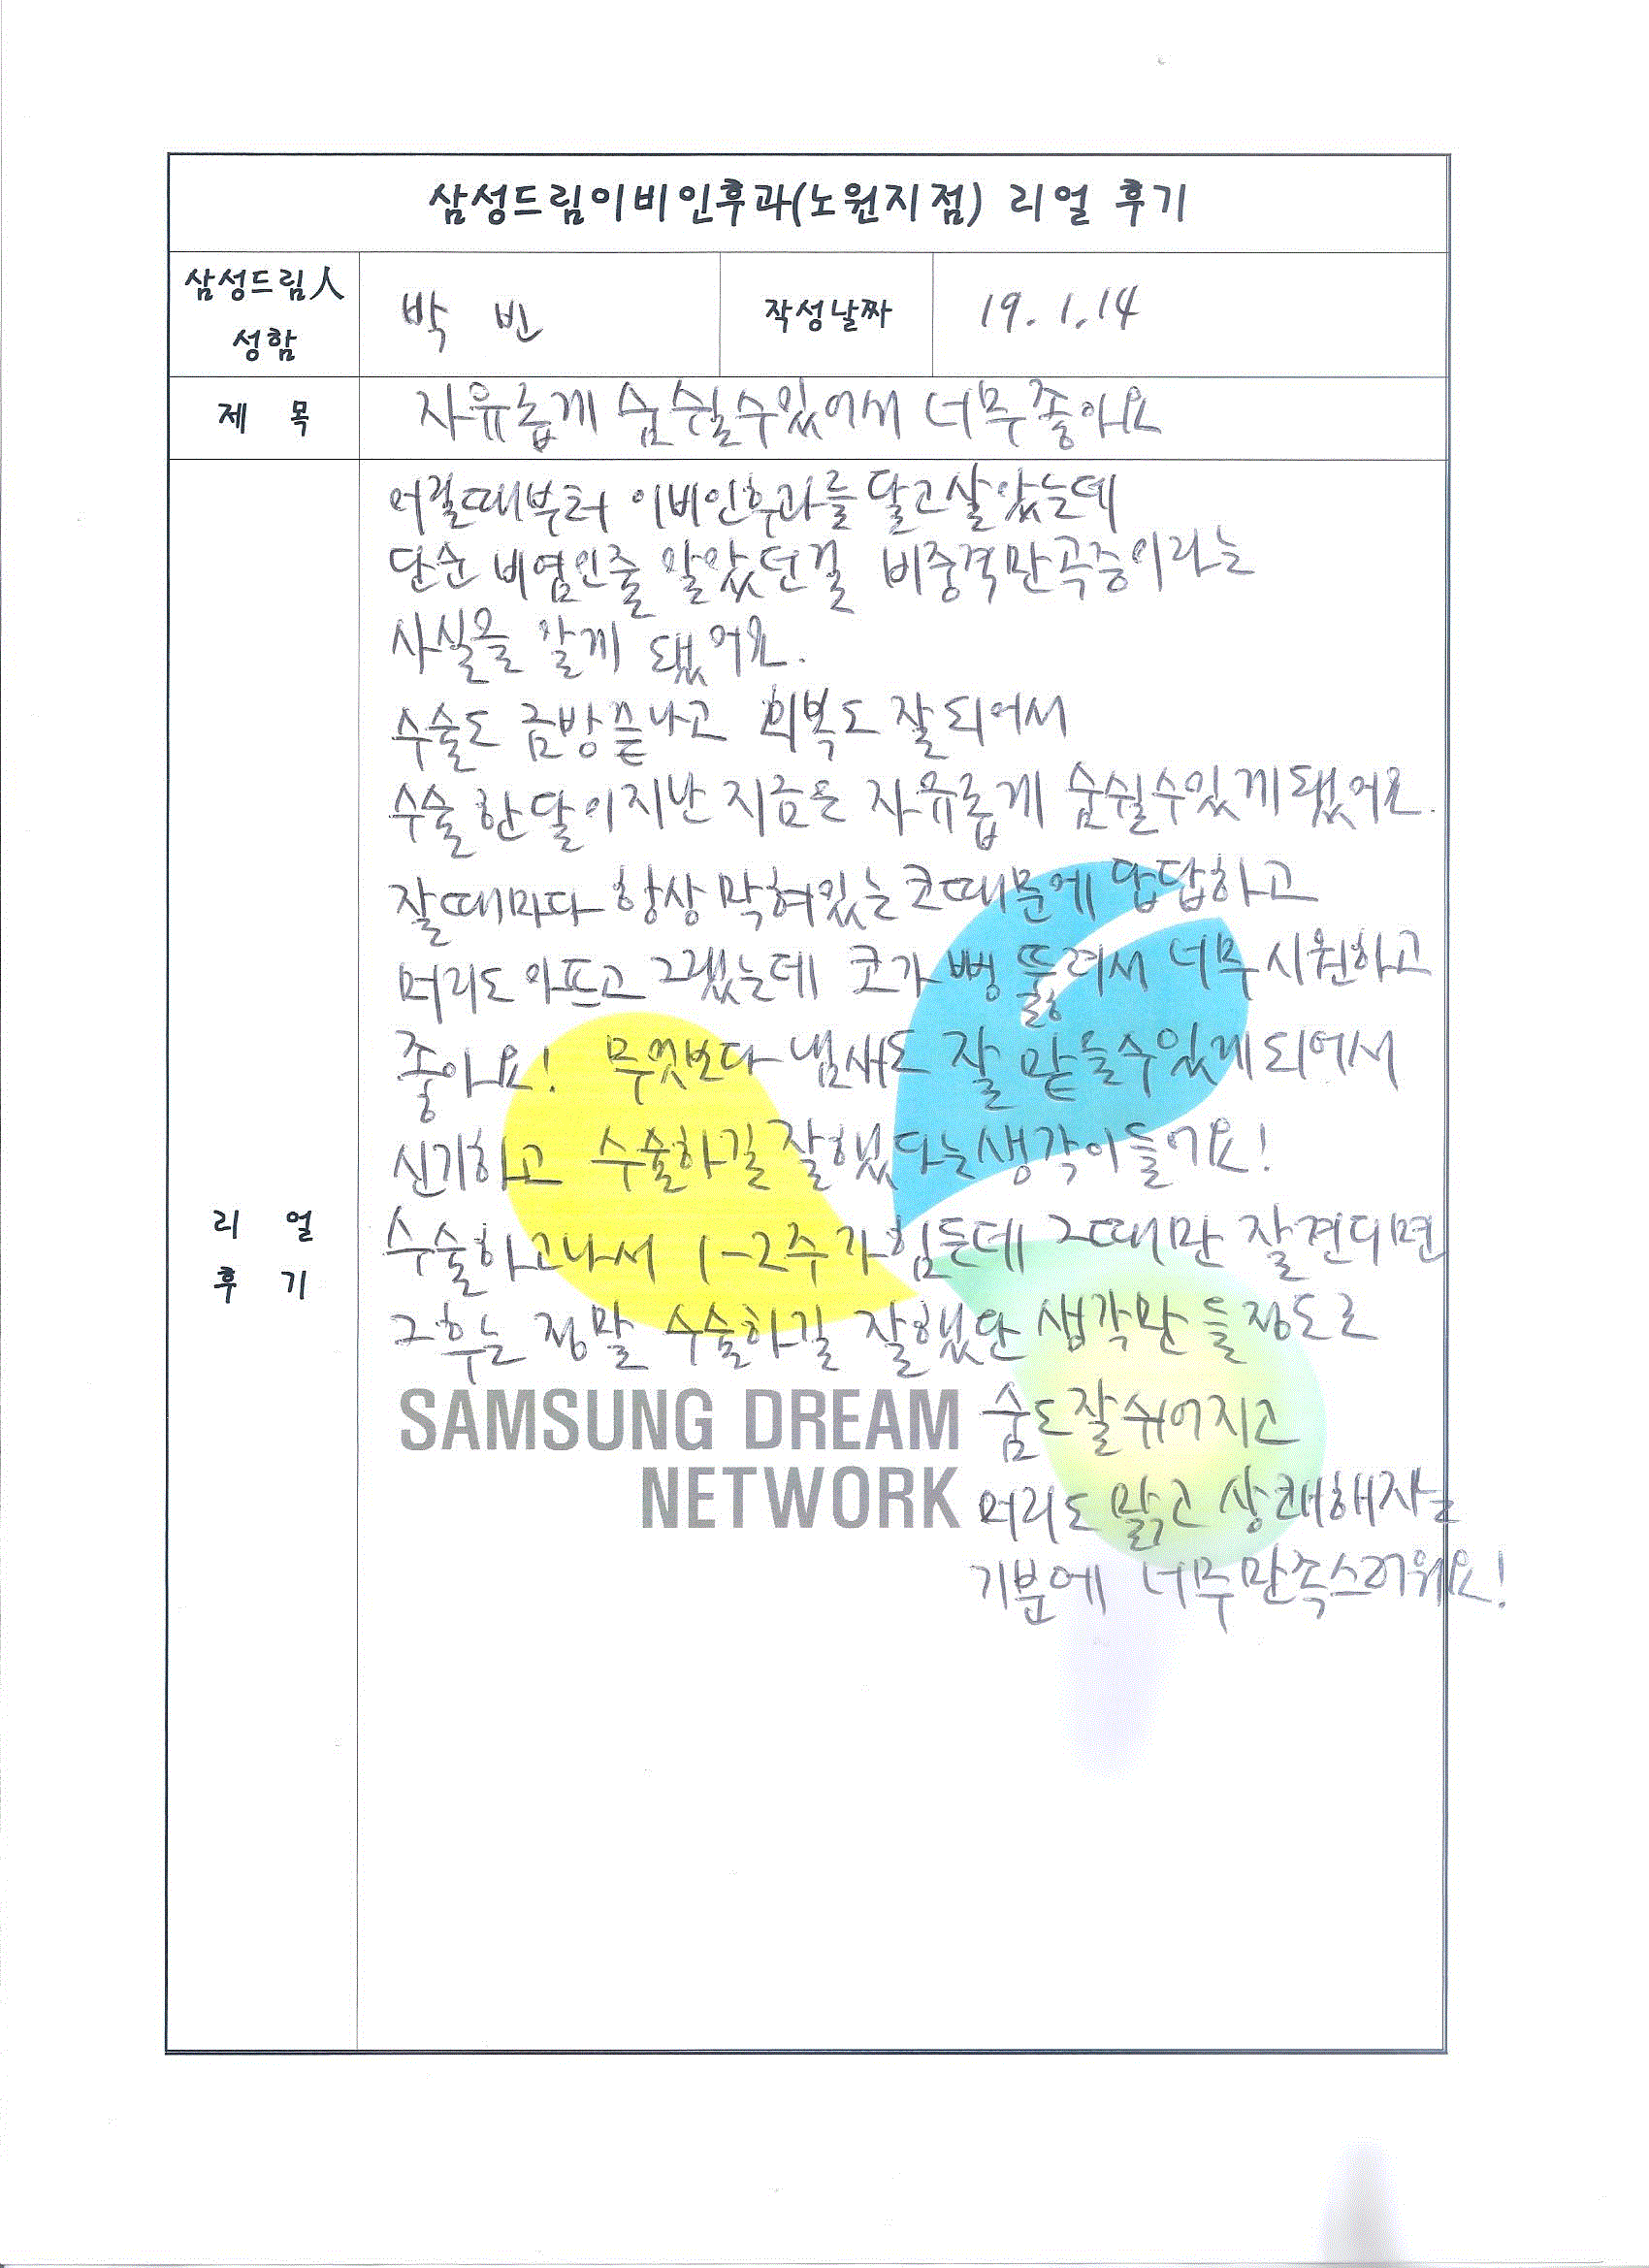 삼성드림이비인후과(노원지점) 리얼 후기
삼성드림人 성함
박 빈
작성날짜
19. 1. 14
제 목
자유롭게 숨쉴수있어서 너무좋아요
리 얼 후 기
어릴때부터 이비인후과를 달고살았는데
단순 비염인줄 알았던걸 비중격만곡증이라는
사실을 알게 됐어요.
수술도 금방끝나고 회복도 잘되어서
수술한달이지난 지금은 자유롭게 숨쉴수있게됐어요.
잘때마다 항상 막혀있는코때문에 답답하고
머리도 아프고 그랬는데 코가 뻥 뚫려서 너무시원하고
좋아요! 무엇보다 냄새도 잘 맡을수있게되어서
신기하고 수술하길잘했다는생각이들어요!
수술하고나서 1-2주가힘든데 그때만 잘견디면
그후는 정말 수술하길 잘했단 생각만 들정도로
숨도잘쉬어지고
머리도 맑고 상쾌해지는
기분에 너무만족스러워요!
SAMSUNG DREAM
NETWORK